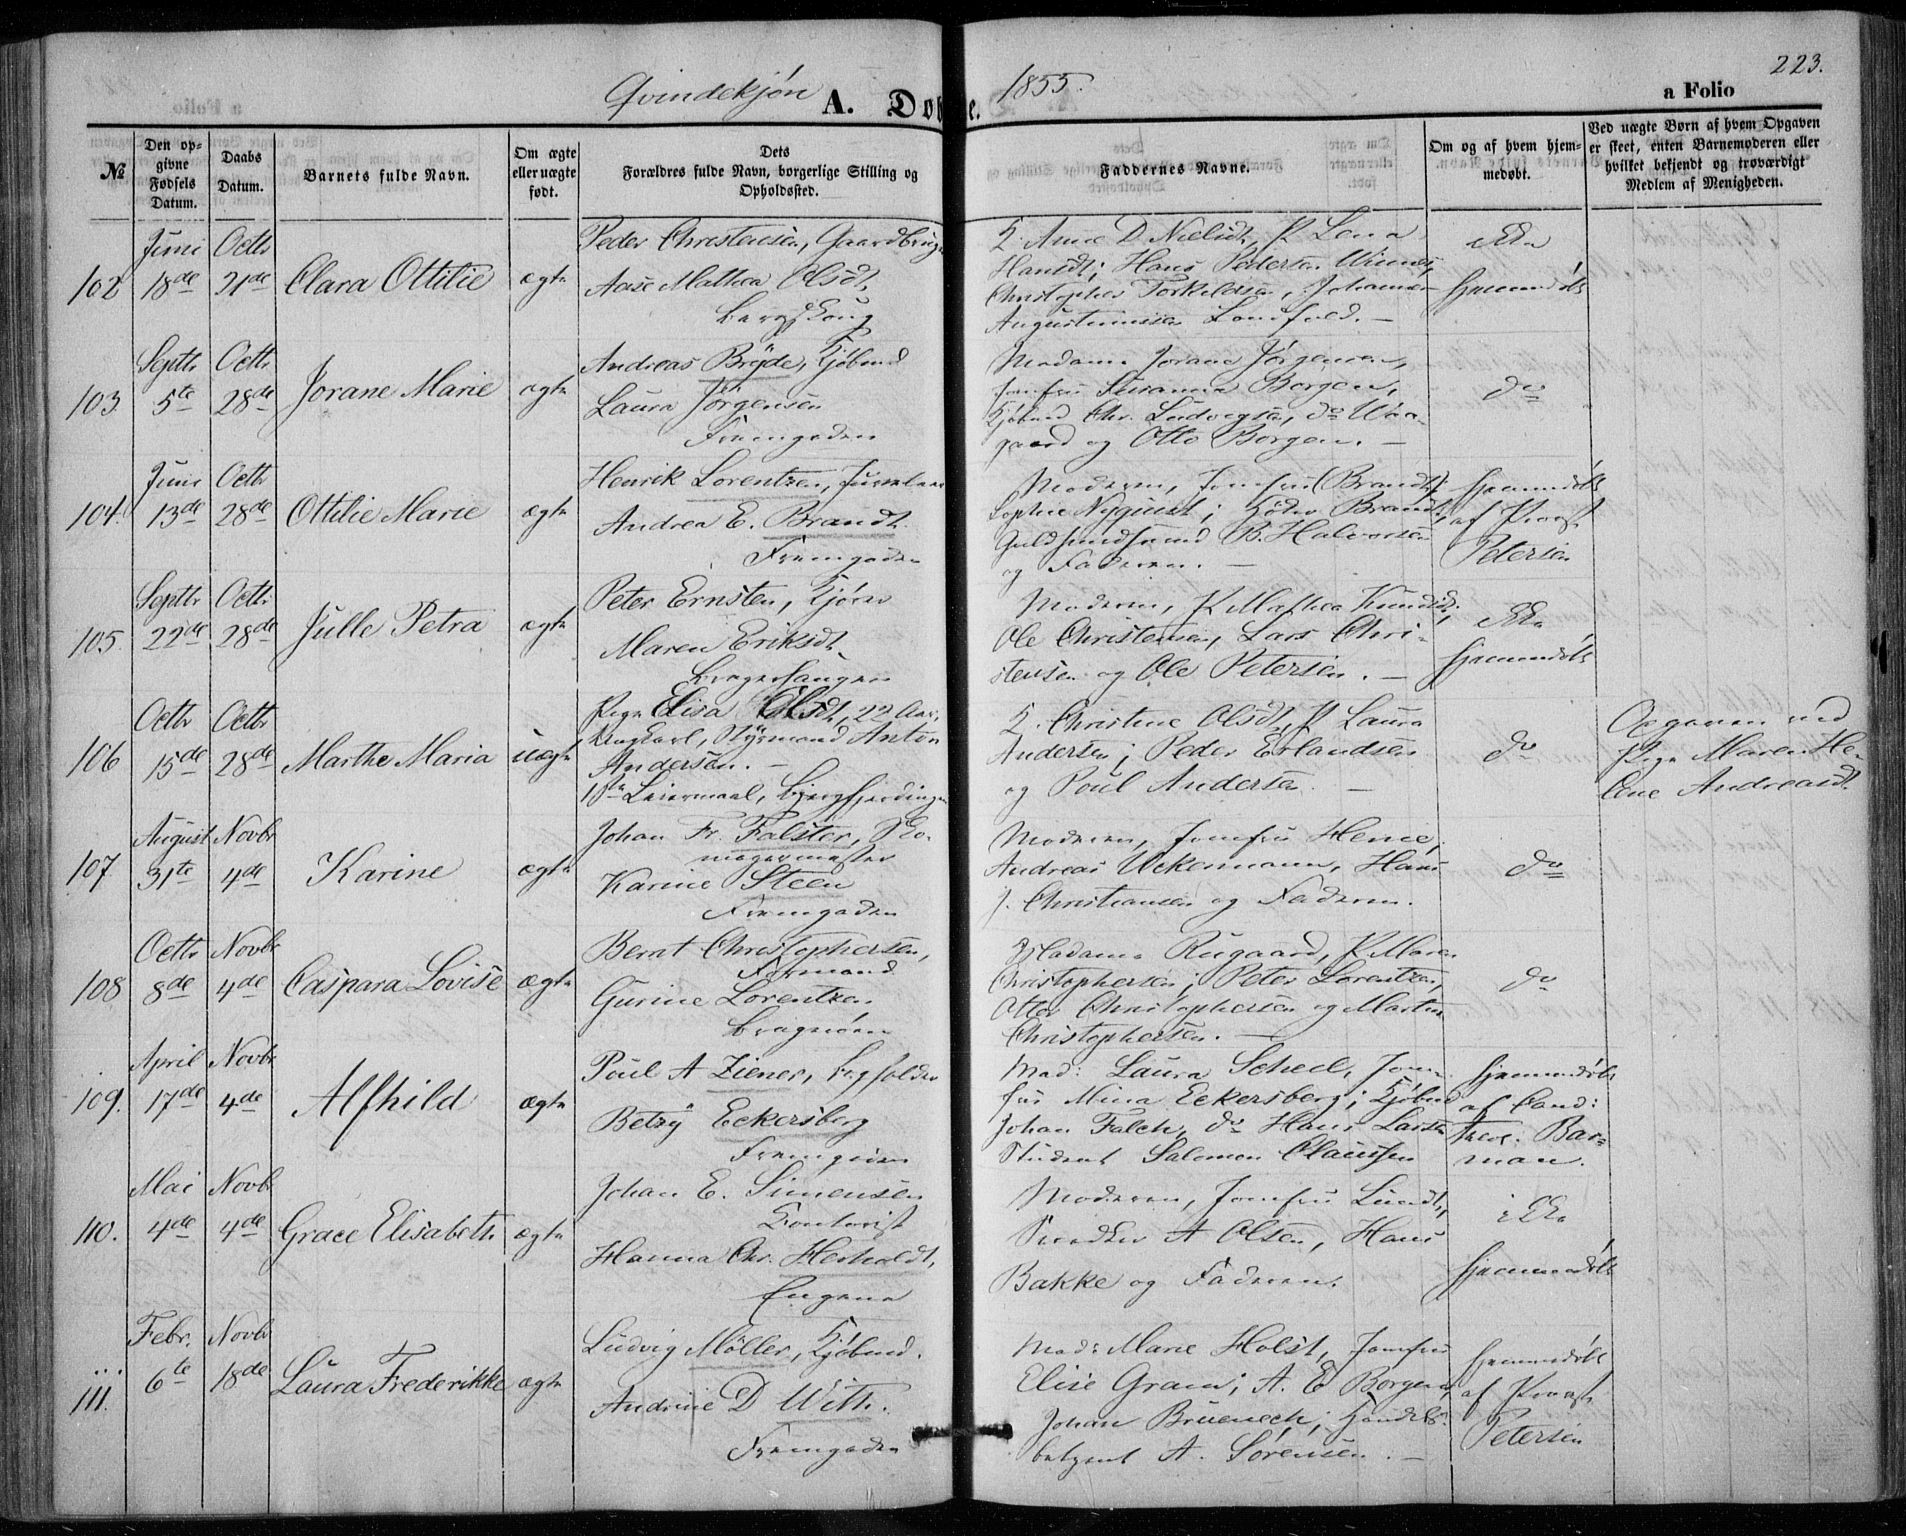 223.
Qvindekjøn
1855.
A. Døbte.
a Folio
№
Den opgivne Fødsels Datum.
Daabs Datum.
Barnets fulde Navn.
Om ægte eller uægte født.
Dets Forældres fulde Navn, borgerlige Stilling og Opholdssted.
Faddernes Navne.
Om og af hvem hjemmedøbt.
Ved uægte Børn af hvem Opgaven er skeet, enten Barnemoderen eller hvilket bekjendt og troværdigt Medlem af Menigheden.
102 Juni 18de Octbr 21de Clara Ottilie ægte
Peder Christensen, Gaardbruger
Aase Mathea Olsdt,
K. Anne D. Nielsdt, P. Lena
Hansdt; Hans Pedersen
Christopher Torkildsen, Johannes
Augustinusen
ikke
hjemmedøbt
103 Septbr 5te Octbr 28de Jorane Marie ægte
Andreas Bryde, Kjøbmd
Laura Jörgensen
Fremgaden
Madame Jorane Jörgensen,
Jomfru Susanna Borgen,
Kjøbmd Chr. Ludvigsen, do
gaard og Otto Borgen. —
do
104. Juni 13de Octbr 28de Ottilie Marie ægte
Henrik Lorentzen,
Andrea E. Brandt.
Fremgaden
Moderen, Jomfru Brandt,
Sophie Nyquist; Brandt,
Guldsmedsvend B. Halvorsen
og Faderen. —
hjemmedøbt
af Provst
Petersen
105. Septbr 22de Octbr 28de Julle Petra ægte
Peter Ernsten,
Maren Eriksdt.
Moderen, P. Mathea Knudsdt;
Ole Christensen, Lars Chri-
stensen og Ole Petersen. —
ikke
hjemmedøbt
106 Octbr 15de Octbr 28de Marthe Maria uægte
Pige Elisa Olsdt, 22 Aar,
Ungkarl, Styrmand Anton
Andersen. —
1ste Leiermaal,
K. Christine Olsdt, P. Laura
Andersen; Peder Erlandsen
og Poul Andersen. —
do
Opgaven ved
Pige Maren He-
lene Andreasdt.
107 August 31te Novbr 4de Karine ægte
Johan Fr. Falster,
magermester
Karine Steen
Fremgaden
Moderen, Jomfru
Andreas Uckermann, Hans
J. Christiansen og Faderen.
do
108 Octbr 8de Novbr 4de Caspara Lovise ægte
Bernt Christophersen,
Formand
Gurine Lorentzen.
Madame Rugaard, P. Maren
Christophersen; Peter Lorentzen,
Otter Christophersen og Martin
Christophersen. —
do
109. April 17de Novbr 4de Alfhild ægte
Poul A Ziener, Bogholder
Betzy Eckersberg
Mad: Laura Scheel, Jom-
fru Mina Eckersberg; Kjøbmd
Johan Falch, do Hans Larsen
Student Salomon Claussen
hjemmedøbt
af Cand:
theol: Bar-
man.
110. Mai 4de Novbr 4de Grace Elisabeth ægte
Johan E. Simensen
Kontorist
Hanna Chr. Herholdt,
Engene
Moderen, Jomfru Lundt,
Snedker A Olsen, Hans
Bakke og Faderen.
ikke
hjemmedøbt
111. Febr. 6te Novbr 18de Laura Frederikke ægte
Ludvig Møller, Kjøbmd.
Andrine D With.
Fremgaden
Mad: Marie Holst, Jomfru
Elise Gram; A. E Borgen,
Johan Bruenech; Handels-
betjent A. Sørensen. —
hjemmedøbt
af Provst
Petersen